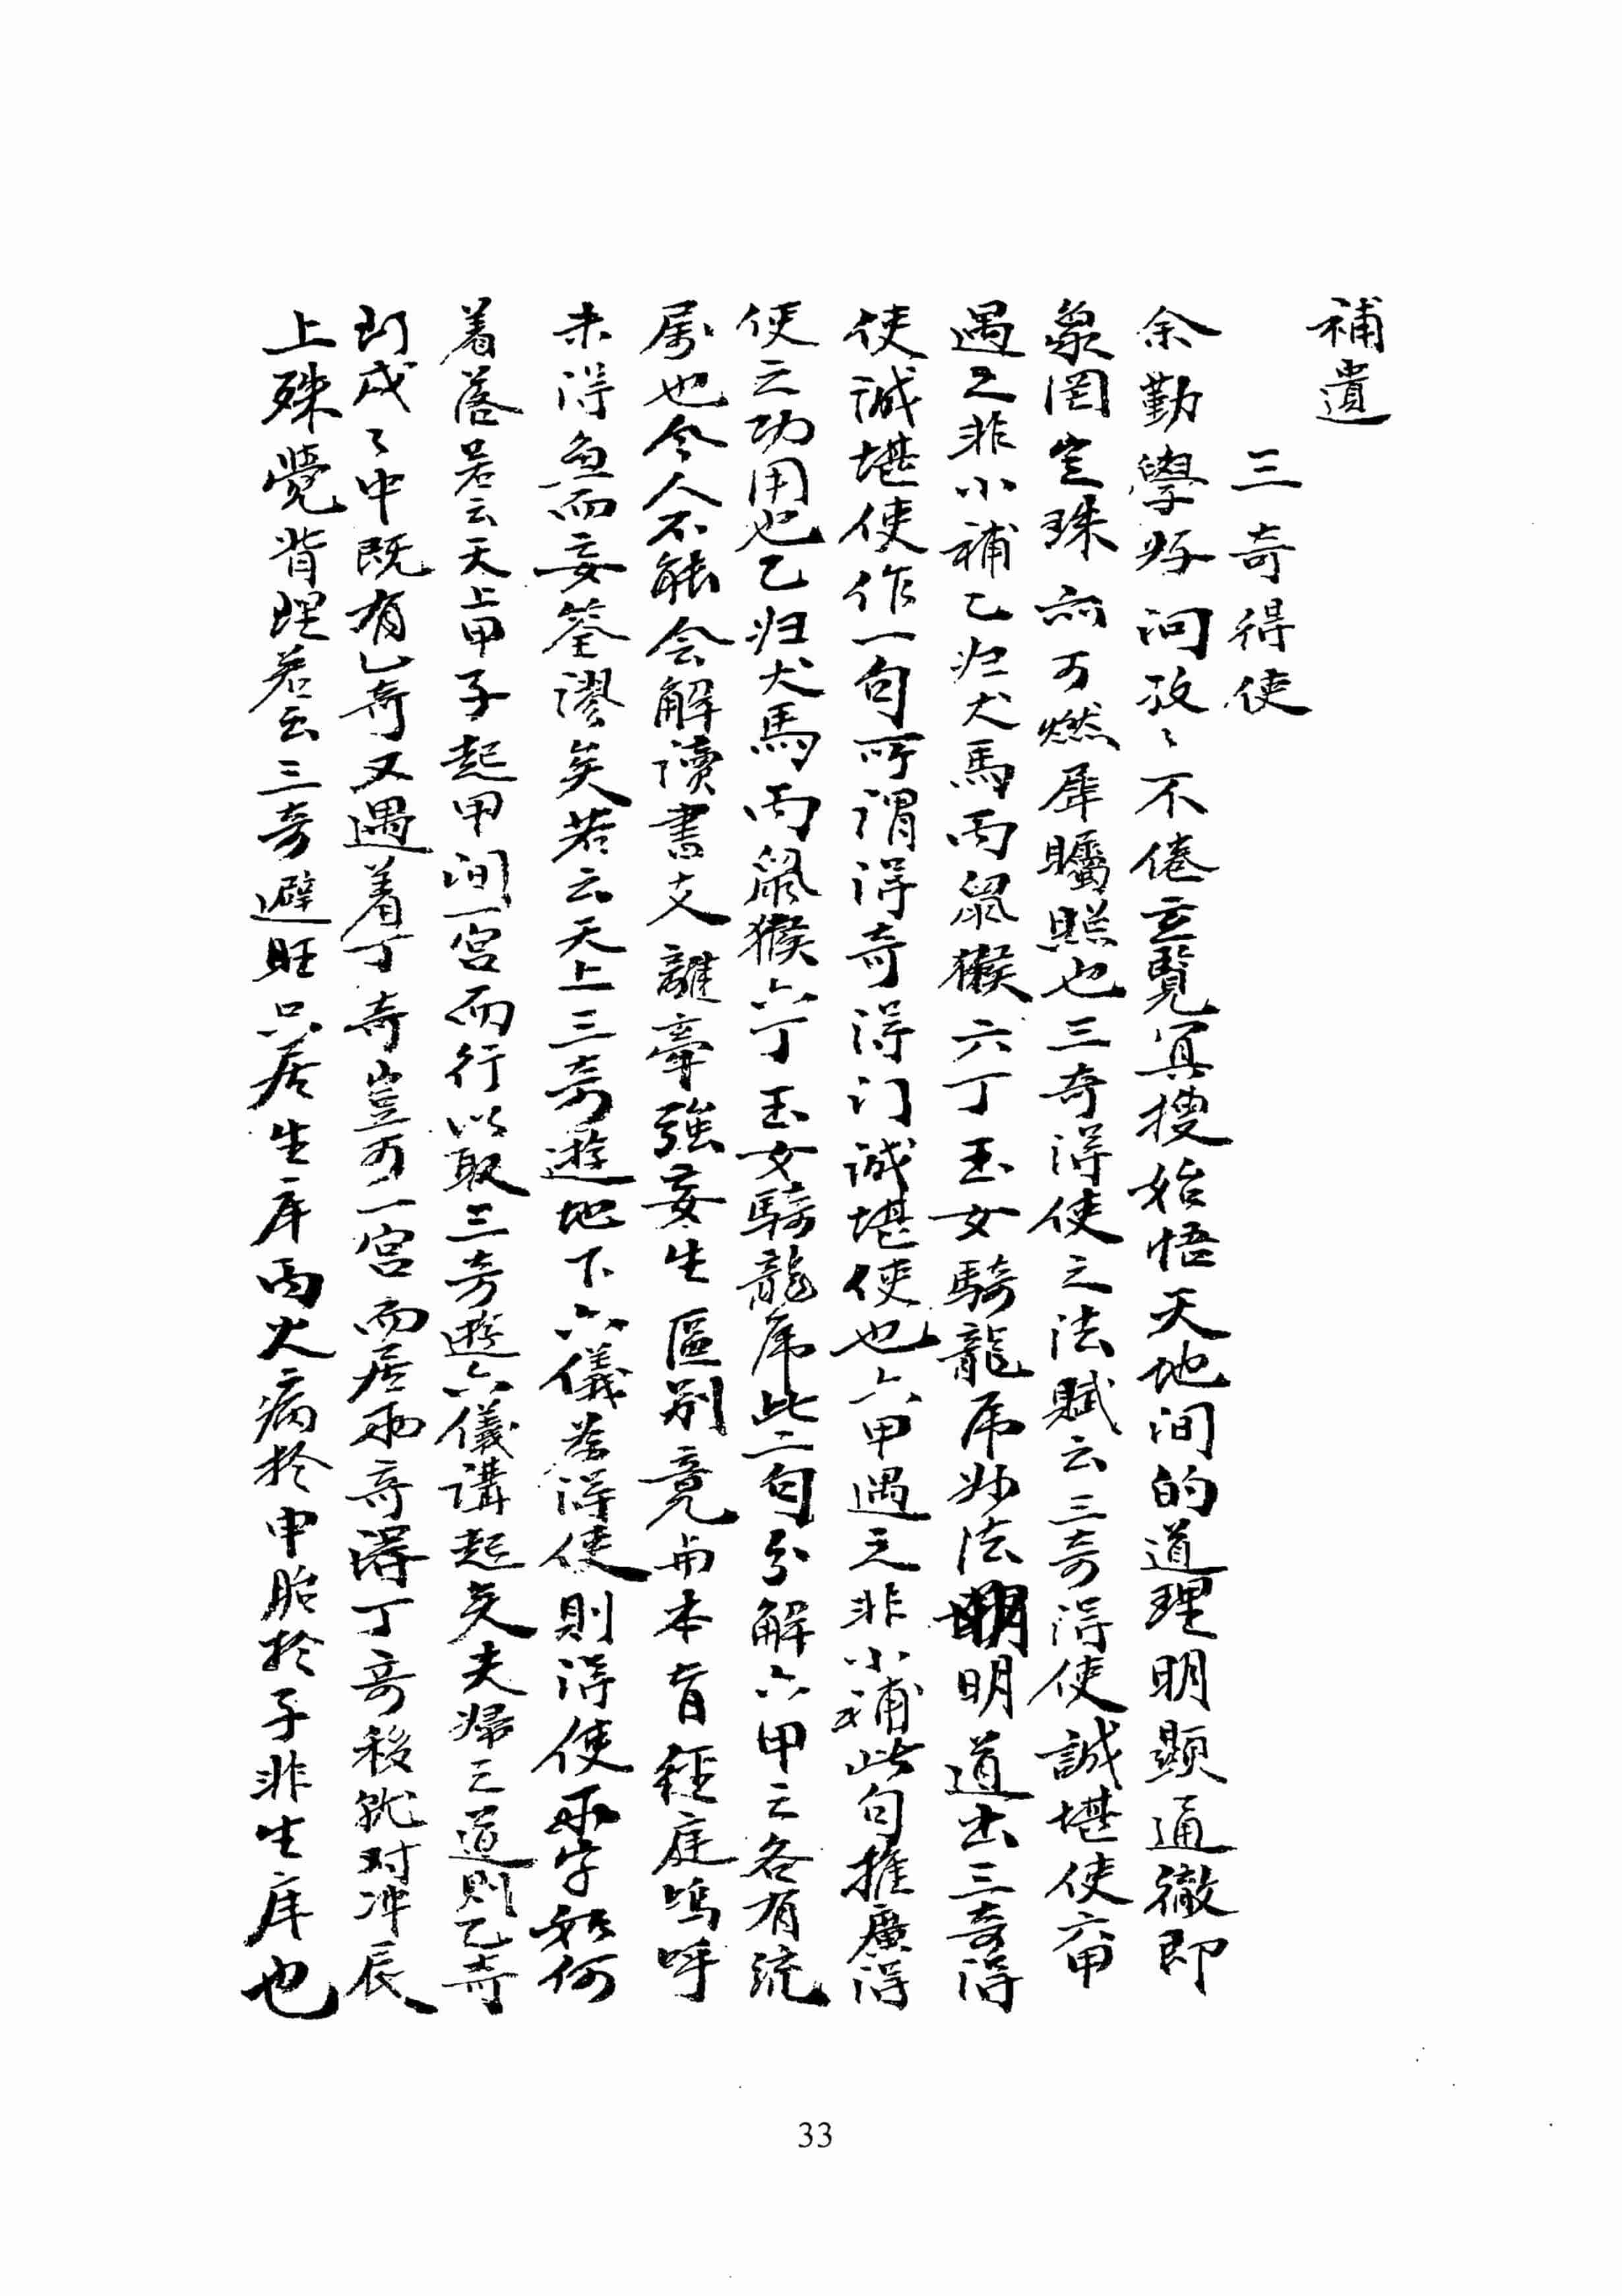 補遺
三奇得使
余勤學好问孜〻不倦玄覽冥搜始悟天地间的道理明顕通徹即
象罔玄珠亦可燃犀矚照也三奇得使之法賦云三奇得使誠堪使六甲
遇之非小補乙归犬馬丙鼠猴六丁玉女騎龍虎妙法明明道出三奇得
使誠堪使作一句所谓得奇得门誠堪使也六甲遇之非小補此句推廣得
使之功用也乙归犬馬丙鼠猴六丁玉女騎龍虎此二句分解六甲之各有统
属也今人不能会解讀書支離牽強妄生區别竟与本旨徑庭嗚呼
未得魚而妄筌謬矣若云天上三奇遊地下六儀為得使則得使兩字如何
着落若云天上甲子起甲间一宫而行以取三奇遊六儀講起矣夫婦之道則乙奇
到戌〻中既有乙奇又遇着丁奇豈可一宫而居兩奇得丁奇移就对冲辰
上殊覺背理若云三奇避旺只居生库丙火病於申胎於子非生库也
33